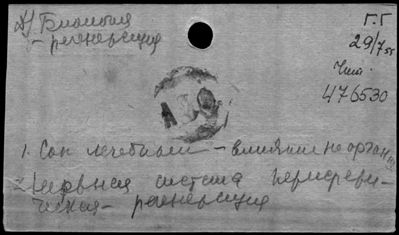 Д) Биология
- регенерация
Г.Г
29/7 55
Чит.
476530
1. Сон лечебный - влияние на органи
2. Нервная система перифери-
ческая - регенерация